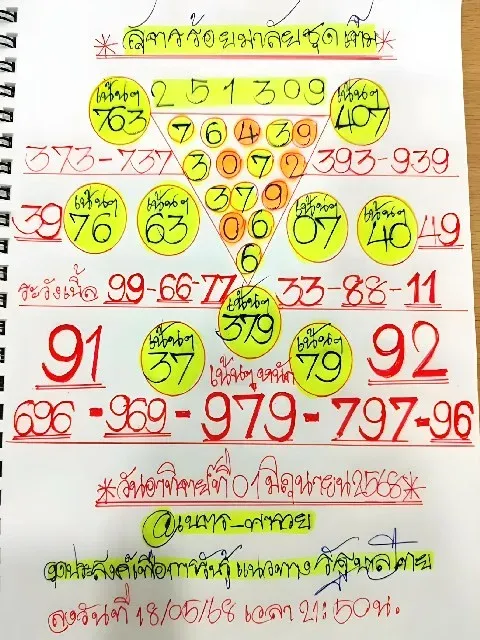 * สูตรร้อยมาลัยชุดเต็ม *
เน้นๆ 763 251309 เน้นๆ 407
7 6 4 3 9
373-737 3 0 7 2 393-939
3 7 9
39 เน้นๆ 76 เน้นๆ 63 0 6 เน้นๆ 07 เน้นๆ 40 49
6
ระวังเบิ้ล 99-66-77 33-88-11
เน้นๆ 379
91 เน้นๆ 37 เน้นๆ 79 92
เน้นๆ หนัก
696-969-979-797-96
*วันอาทิตย์ที่ 01 มิถุนายน 2568*
จุดประสงค์เพื่อการหันรู้ แนวทาง รัฐบาลไทย
ลงวันที่ 18/05/68 เวลา 21:50 น.